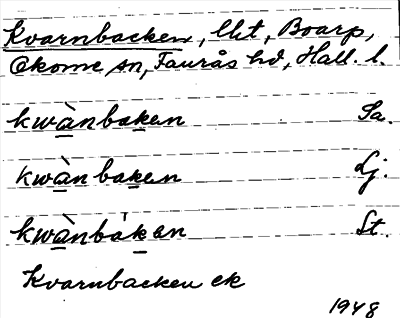 Kvarnbacken, Uht, Boarp,
Okome sn, Faurås hd, Hall. l.
kwànbaken Sa.
kwànbaken Lj.
kwànbàken St.
Kvarnbacken ek
1948